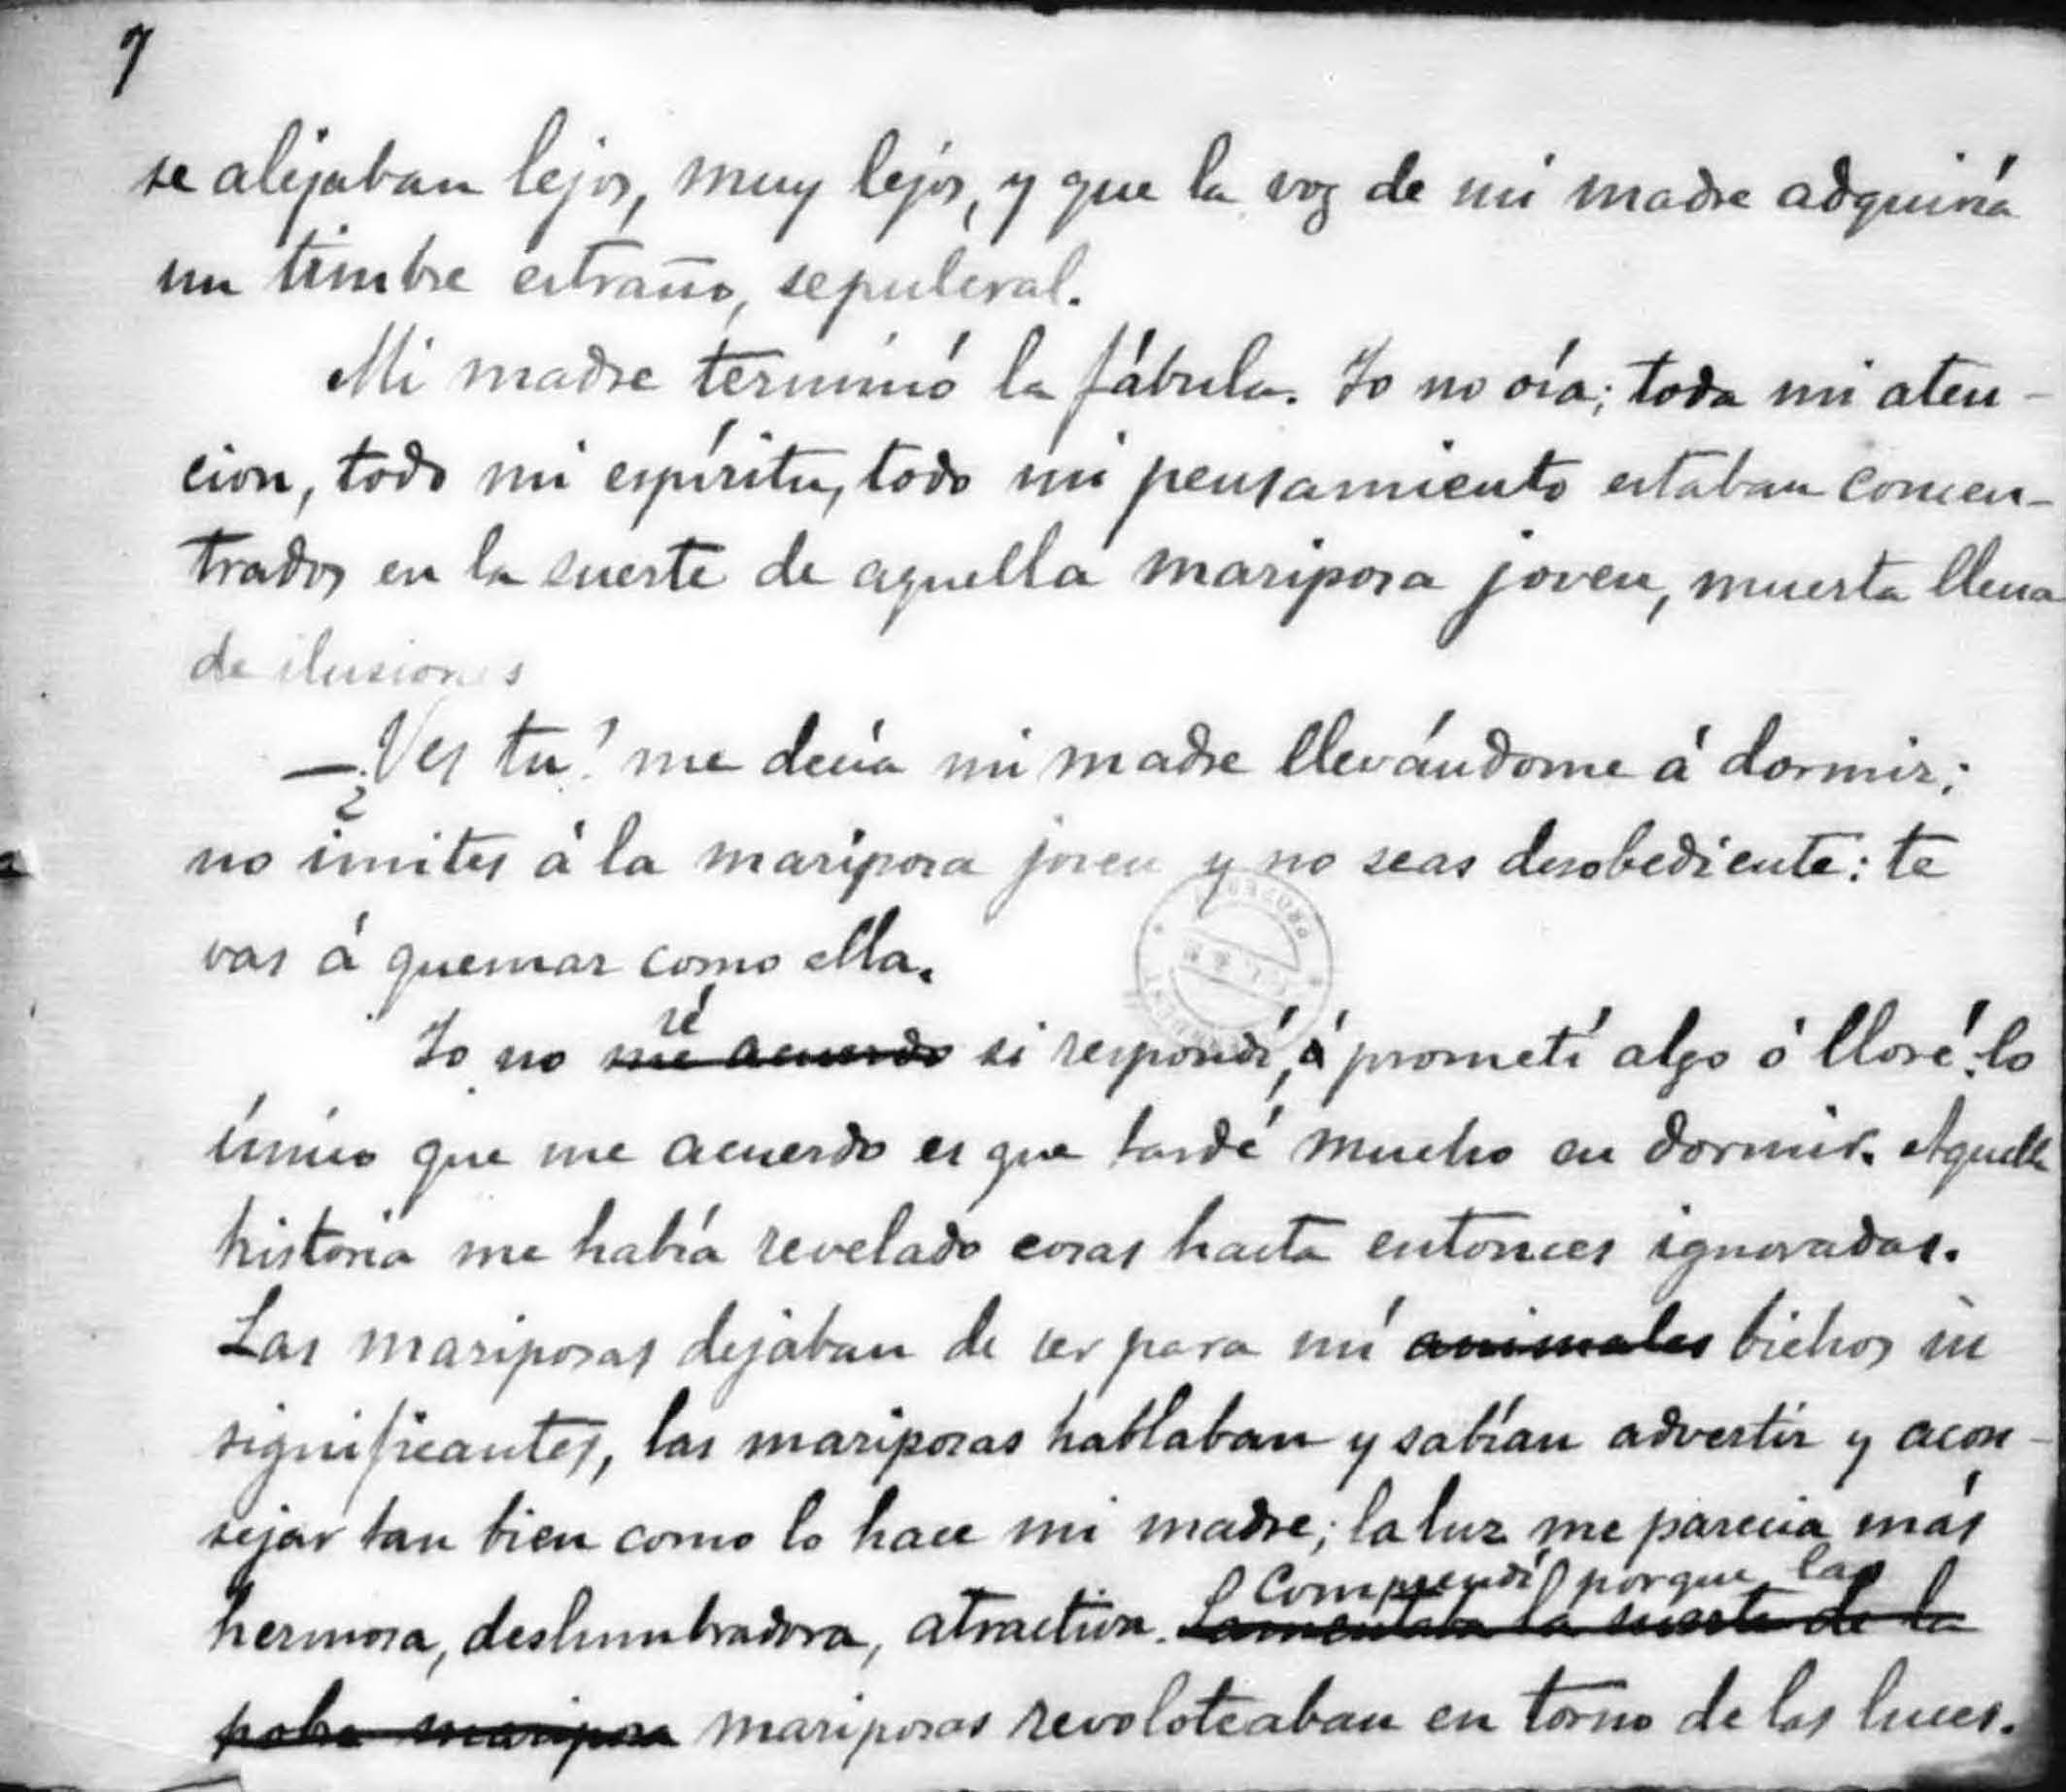 7
se alejaban lejos, muy lejos, y que la voz de mi madre adquiría
un timbre estraño, sepulcral.
Mi madre terminó la fábula. Yo no oía; toda mi aten-
cion, todo mi espíritu, todo mi pensamiento estaban concen-
trados en la suerte de aquella mariposa joven, muerta llena
de ilusiones
—¿Ves tu? me decía mi madre llevándome á dormir;
no imites á la mariposa joven y no seas desobediente: te
vas á quemar como ella.
sé
Yo no me acuerdo si respondí, ó prometí algo ó lloré: lo
único que me acuerdo es que tardé mucho en dormir. Aquella
historia me había revelado cosas hasta entonces ignoradas.
Las mariposas dejaban de ser para mí animales bichos in
significantes, las mariposas hablaban y sabían advertir y acon-
sejar tan bien como lo hace mi madre; la luz me parecia más
Comprendí porque las
hermosa, deslumbradora, atractiva. Lamentaba la suerte de la
pobre mariposa mariposas revoloteaban en torno de las luces.